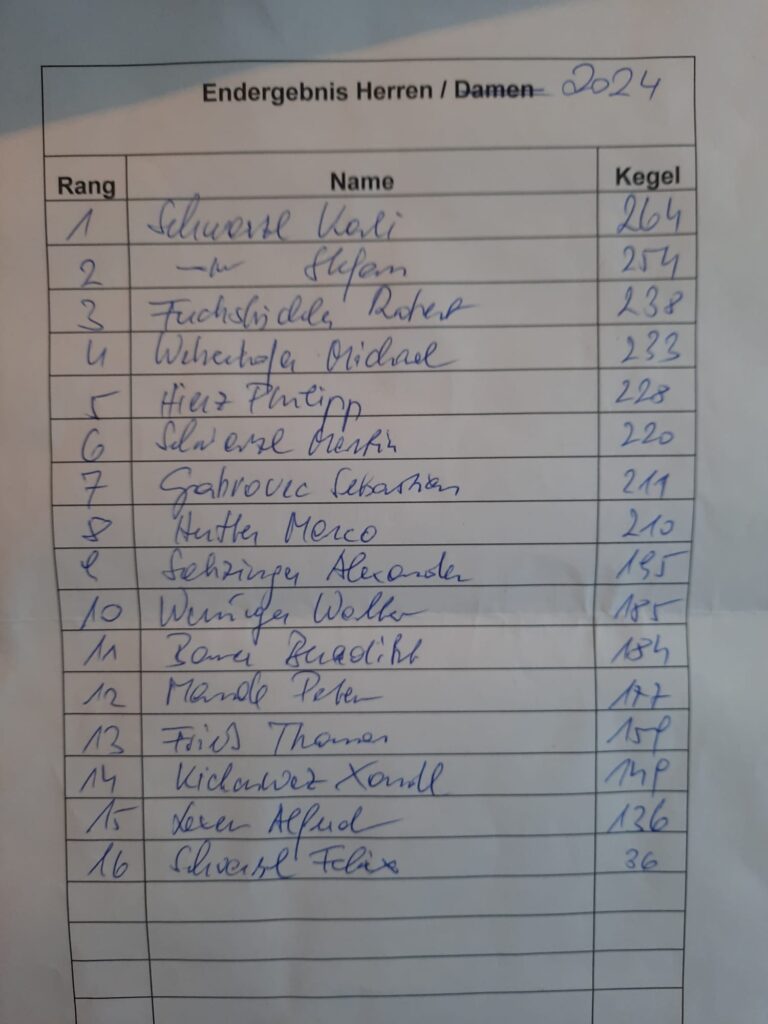 Endergebnis Herren / Damen 2024
Rang Name Kegel
1 Schwarzl Karli 264
2 —"— Stefan 254
3 Robert 238
4 Weberhofer Michael 233
5 Hierz Philipp 228
6 Schwarzl Martin 220
7 Gabrovec Sebastian 211
8 Marco 210
9 Alexander 195
10 Weninger Walter 185
11 Bauer Benedikt 184
12 Peter 177
13 Frieß Thomas 159
14 149
15 Alfred 136
16 Schwarzl Felix 36